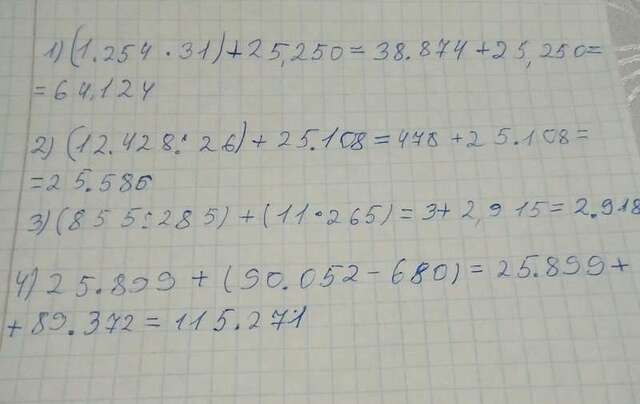 1) (1.254 · 31) + 25,250 = 38.874 + 25,250 =
= 64.124
2) (12.428 : 26) + 25.108 = 478 + 25.108 =
= 25.586
3) (855 : 285) + (11 · 265) = 3 + 2,915 = 2.918
4) 25.899 + (90.052 - 680) = 25.899 +
+ 89.372 = 115.271